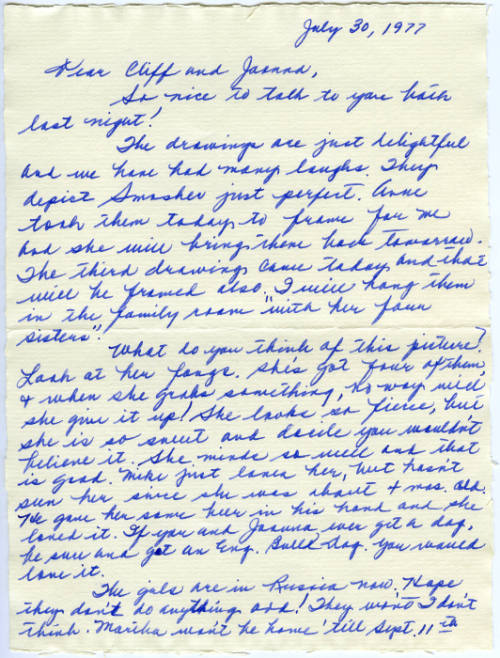 July 30, 1977
Dear Cliff and Joanna,
So nice to talk to you both
last night!
The drawings are just delightful
and we have had many laughs. They
depict Smasher just perfect. Anne
took them today to frame for me
and she will bring them back tomorrow.
The third drawing came today and that
will be framed also. I will hang them
in the family room "with her four
sisters".
What do you think of this picture?
Look at her fangs. She's got four of them,
& when she grabs something, no way will
she give it up! She looks so fierce, but
she is so sweet and docile you wouldn't
believe it. She minds so well and that
is good. Mike just loves her, but hasn't
seen her since she was about 4 mos. old.
He gave her some beer in his hand and she
loved it. If you and Joanna ever get a dog,
be sure and get an Eng. Bull Dog. You would
love it.
The girls are in Russia now. Hope
they don't do anything odd! They won't I don't
think. Martha won't be home 'till Sept. 11th